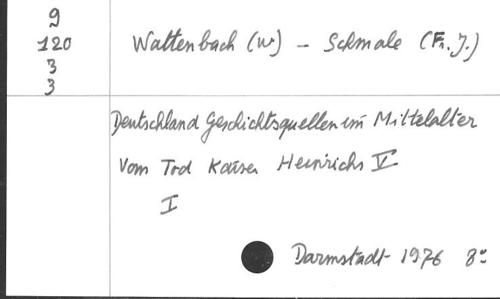 9
120
3
3
Wattenbach (W) - Schmale (Fr. J.)
Deutschland Geschichtsquellen im Mittelalter
vom Tod Kaiser Heinrichs V
I
Darmstadt 1976 8°